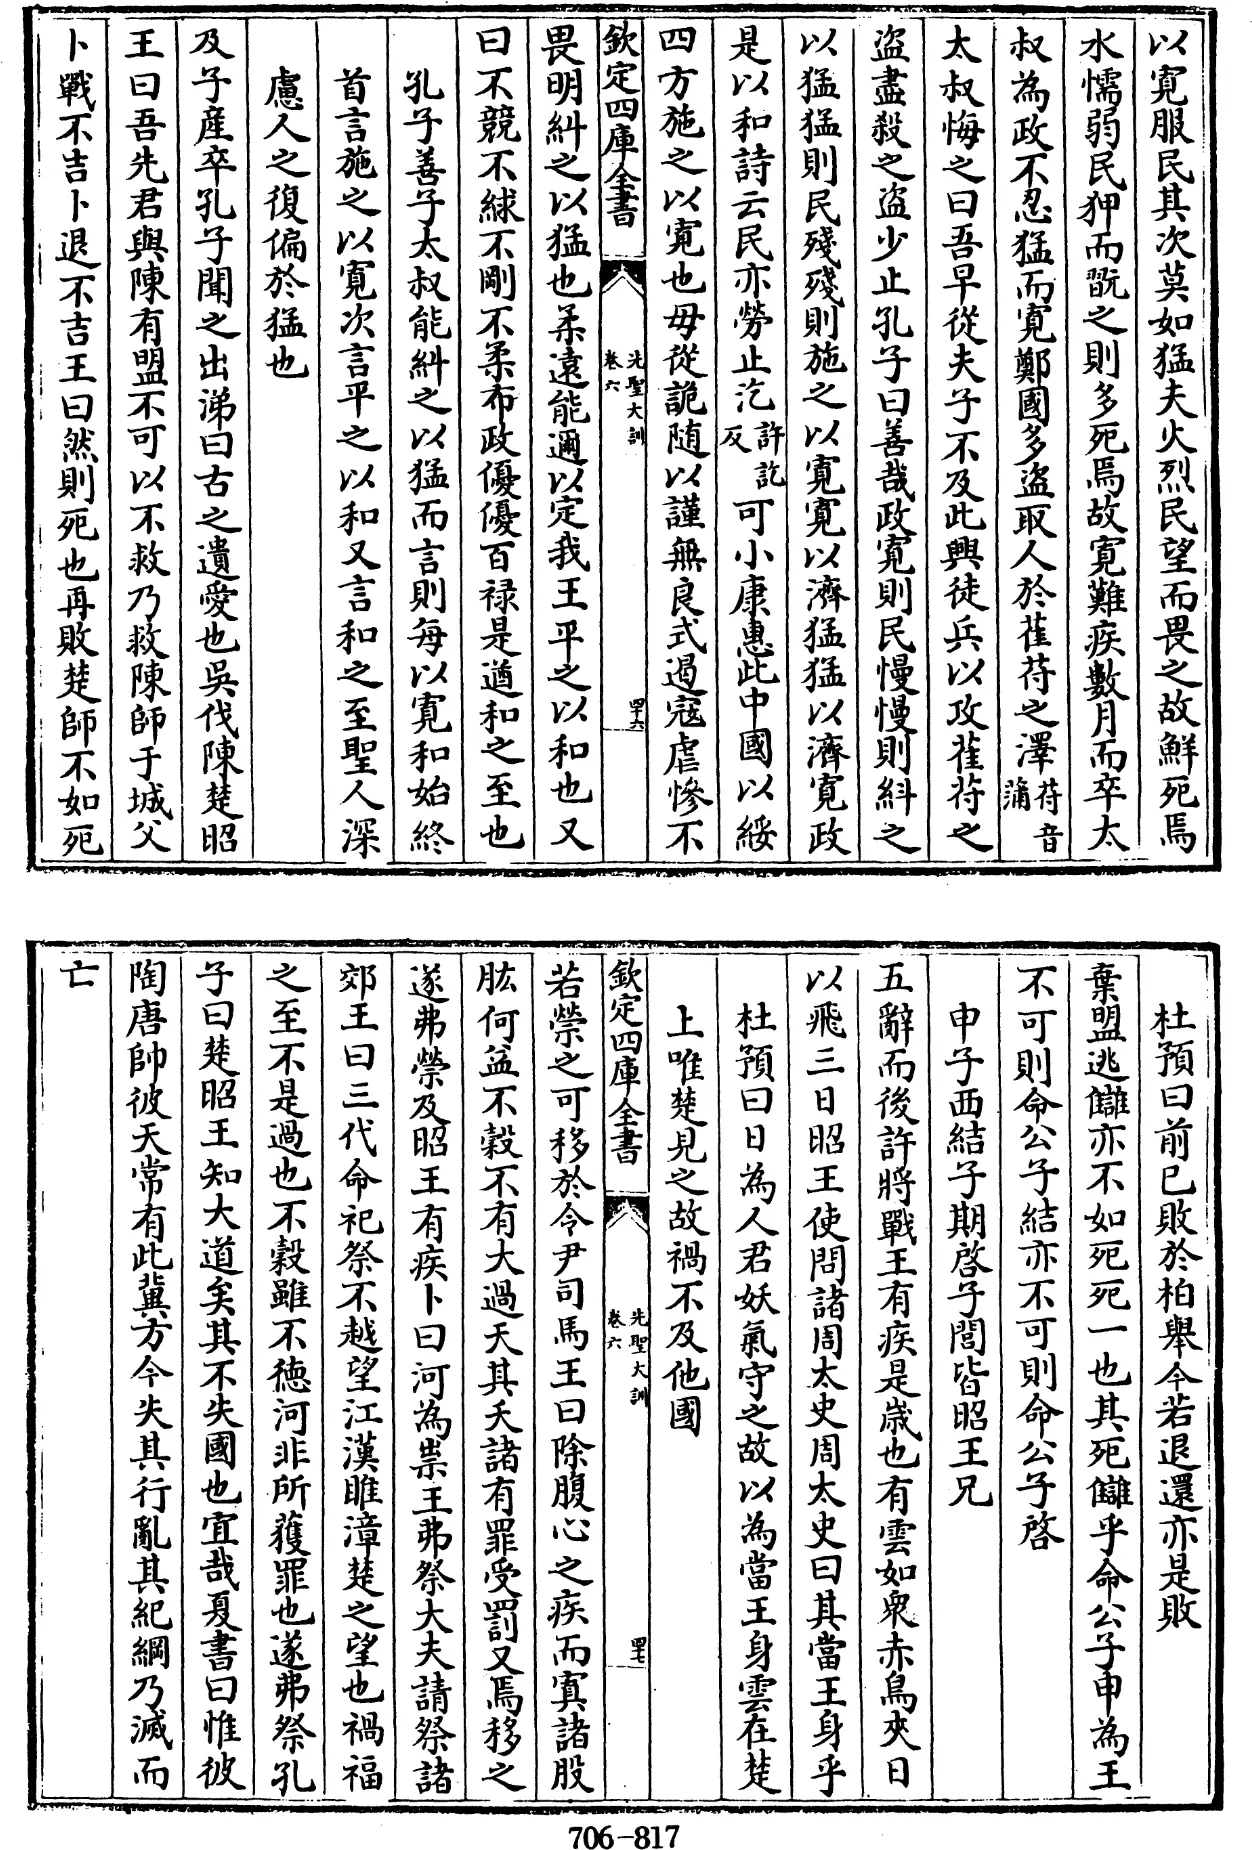 以寛服民其次莫如猛夫火烈民望而畏之故鮮死焉
水懦弱民狎而翫之則多死焉故寛難疾數月而卒太
叔為政不忍猛而寛鄭國多盜取人於萑苻之澤苻音蒲
太叔悔之曰吾早從夫子不及此興徒兵以攻萑苻之
盜盡殺之盜少止孔子曰善哉政寛則民慢慢則糾之
以猛猛則民殘殘則施之以寛寛以濟猛猛以濟寛政
是以和詩云民亦勞止汔許訖反可小康惠此中國以綏
四方施之以寛也毋從詭随以謹無良式遏寇虐慘不
欽定四庫全書 先聖大訓 卷六 四十六
畏明糾之以猛也柔遠能邇以定我王平之以和也又
曰不競不絿不剛不柔布政優優百禄是遒和之至也
孔子善子太叔能糾之以猛而言則每以寛和始終
首言施之以寛次言平之以和又言和之至聖人深
慮人之復偏於猛也
及子產卒孔子聞之出涕曰古之遺愛也吳伐陳楚昭
王曰吾先君與陳有盟不可以不救乃救陳師于城父
卜戰不吉卜退不吉王曰然則死也再敗楚師不如死
杜預曰前已敗於柏舉今若退還亦是敗
棄盟逃讎亦不如死死一也其死讎乎命公子申為王
不可則命公子結亦不可則命公子啓
申子西結子期啓子閭皆昭王兄
五辭而後許將戰王有疾是歳也有雲如衆赤鳥夾日
以飛三日昭王使問諸周太史周太史曰其當王身乎
杜預曰日為人君妖氣守之故以為當王身雲在楚
上唯楚見之故禍不及他國
欽定四庫全書 先聖大訓 卷六 四十七
若禜之可移於令尹司馬王曰除腹心之疾而寘諸股
肱何益不榖不有大過天其夭諸有罪受罰又焉移之
遂弗禜及昭王有疾卜曰河為祟王弗祭大夫請祭諸
郊王曰三代命祀祭不越望江漢睢漳楚之望也禍福
之至不是過也不榖雖不德河非所獲罪也遂弗祭孔
子曰楚昭王知大道矣其不失國也宜哉夏書曰惟彼
陶唐帥彼天常有此冀方今失其行亂其紀綱乃滅而
亡
706-817